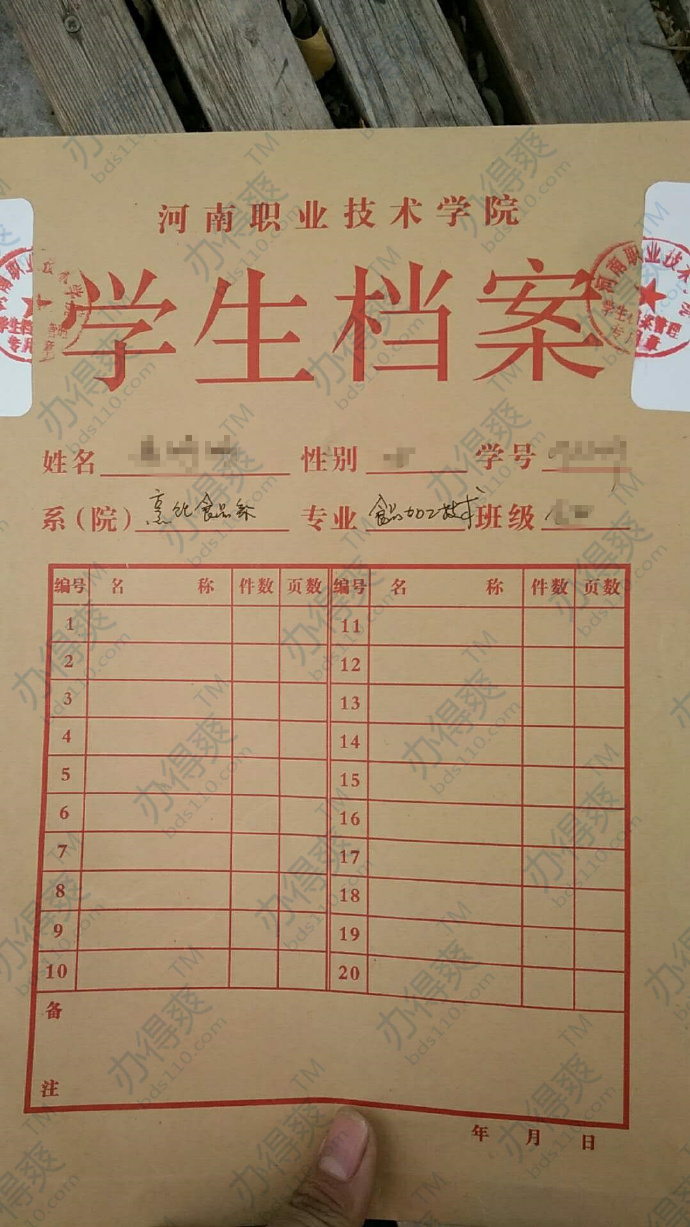 河南职业技术学院
学生档案
姓名 性别 学号
系(院) 烹饪食品系 专业 食品加工技术 班级
编号 名 称 件数 页数 编号 名 称 件数 页数
1 11
2 12
3 13
4 14
5 15
6 16
7 17
8 18
9 19
10 20
备
注
年 月 日
办得爽 TM
bds110.com